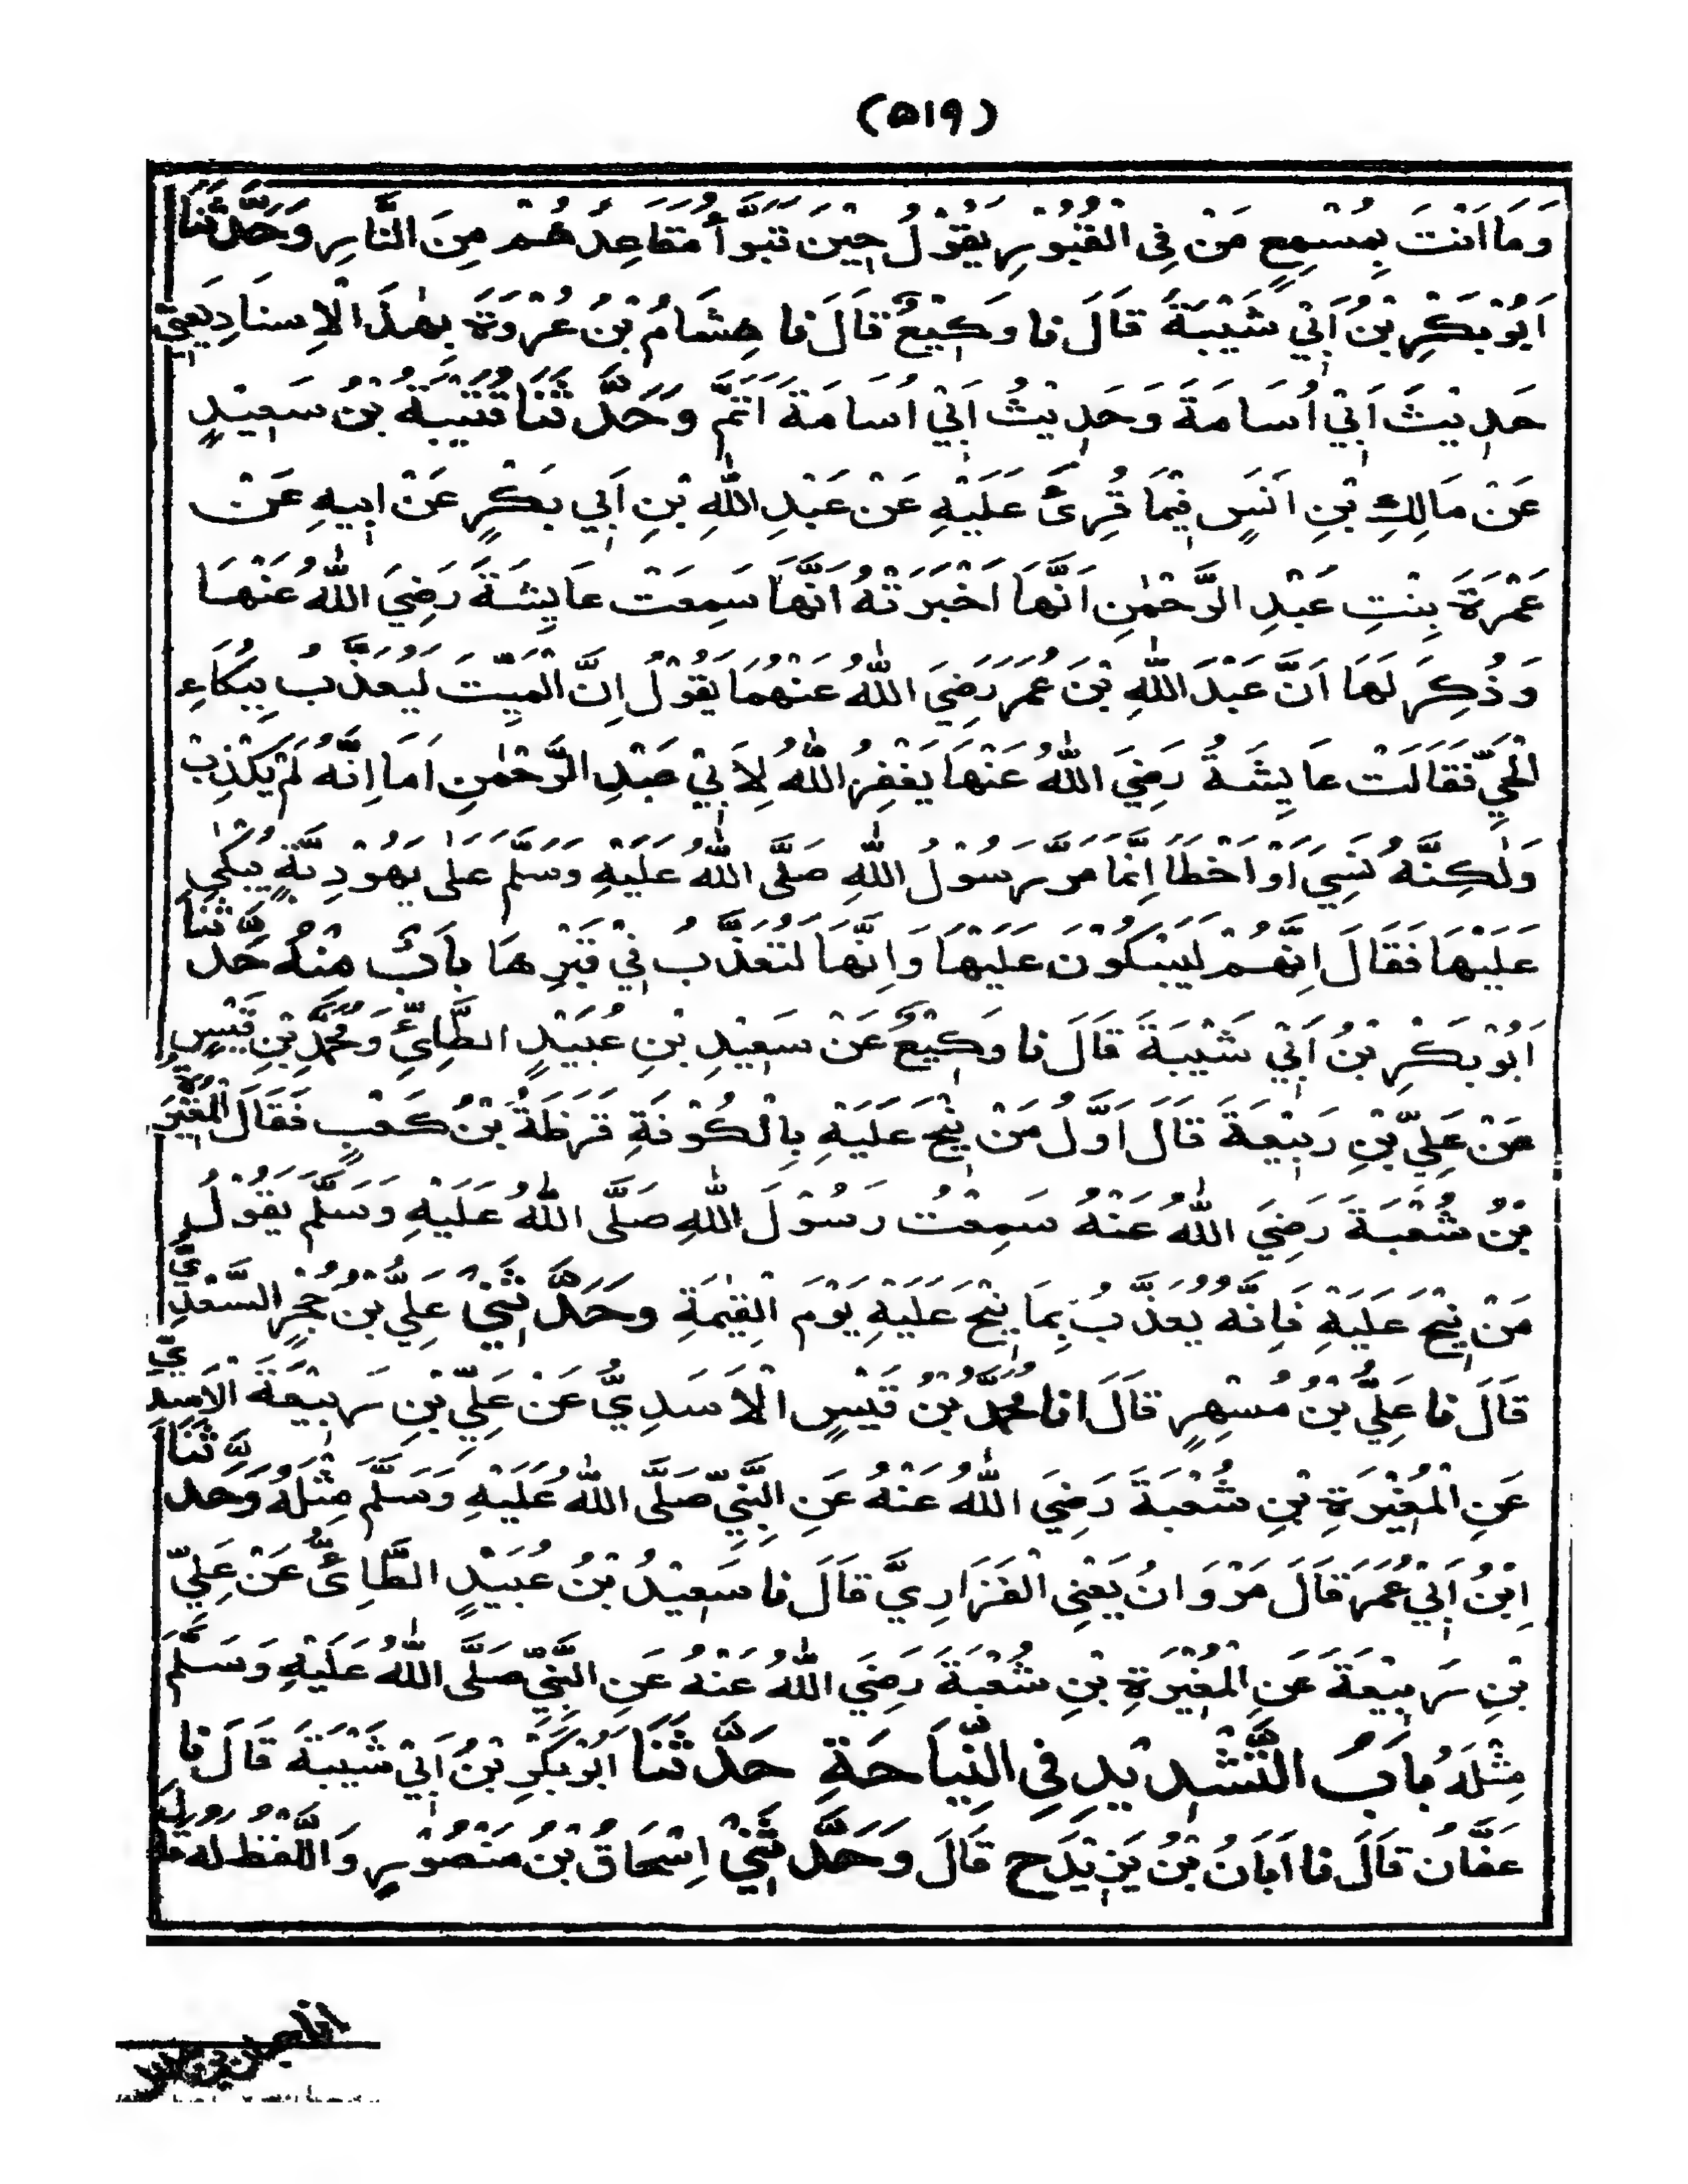 (٥١٩)
وَمَا اَنْتَ بِمُسْمِعٍ مَنْ فِی الْقُبُوْرِ يَقُوْلُ حِيْنَ تَبَوَّأُ مَقَاعِدَهُمْ مِنَ النَّارِ وَحَدَّثَنَا
اَبُوْ بَكْرِ بْنُ اَبِيْ شَيْبَةَ قَالَ نا وَكِيْعٌ قَالَ نا هِشَامُ بْنُ عُرْوَةَ بِهٰذَا الْاِسنَادِ بِمَعْنٰی
حَدِيْثَ اَبِيْ اُسَامَةَ وَحَدِيْثُ اَبِيْ اُسَامَةَ اَتَمُّ وَحَدَّثَنَا قُتَيْبَةُ بْنُ سَعِيْدٍ
عَنْ مَالِكِ بْنِ اَنَسٍ فِيْمَا قُرِئَ عَلَيْهِ عَنْ عَبْدِ اللّٰهِ بْنِ اَبِي بَكْرٍ عَنْ اَبِيهِ عَنْ
عَمْرَةَ بِنْتِ عَبْدِ الرَّحْمٰنِ اَنَّهَا اَخْبَرَتْهُ اَنَّهَا سَمِعَتْ عَايِشَةَ رَضِيَ اللّٰهُ عَنْهَا
وَذُكِرَ لَهَا اَنَّ عَبْدَ اللّٰهِ بْنَ عُمَرَ رَضِيَ اللّٰهُ عَنْهُمَا يَقُوْلُ اِنَّ الْمَيِّتَ لَيُعَذَّبُ بِبُكَاءِ
الْحَيِّ فَقَالَتْ عَايِشَةُ رَضِيَ اللّٰهُ عَنْهَا يَغْفِرُ اللّٰهُ لِاَبِيْ عَبْدِ الرَّحْمٰنِ اَمَا اِنَّهُ لَمْ يَكْذِبْ
وَلٰكِنَّهُ نَسِيَ اَوْ اَخْطَأَ اِنَّمَا مَرَّ رَسُوْلُ اللّٰهِ صَلَّی اللّٰهُ عَلَيْهِ وَسَلَّمَ عَلٰی يَهُوْدِيَّةٍ يُبْكٰی
عَلَيْهَا فَقَالَ اِنَّهُمْ لَيَبْكُوْنَ عَلَيْهَا وَاِنَّهَا لَتُعَذَّبُ فِيْ قَبْرِهَا بَابٌ مِنْهُ حَدَّثَنَا
اَبُوْ بَكْرِ بْنُ اَبِيْ شَيْبَةَ قَالَ نا وَكِيْعٌ عَنْ سَعِيْدِ بْنِ عُبَيْدٍ الطَّائِيِّ وَمُحَمَّدِ بْنِ قَيْسٍ
عَنْ عَلِيِّ بْنِ رَبِيْعَةَ قَالَ اَوَّلُ مَنْ نِيْحَ عَلَيْهِ بِالْكُوْفَةِ قَرَظَةُ بْنُ كَعْبٍ فَقَالَ الْمُغِيْرَةُ
بْنُ شُعْبَةَ رَضِيَ اللّٰهُ عَنْهُ سَمِعْتُ رَسُوْلَ اللّٰهِ صَلَّی اللّٰهُ عَلَيْهِ وَسَلَّمَ يَقُوْلُ
مَنْ نِيْحَ عَلَيْهِ فَاِنَّهُ يُعَذَّبُ بِمَا نِيْحَ عَلَيْهِ يَوْمَ الْقِيٰمَةِ وَحَدَّثَنِيْ عَلِيُّ بْنُ حُجْرٍ السَّعْدِيُّ
قَالَ نا عَلِيُّ بْنُ مُسْهِرٍ قَالَ انا مُحَمَّدُ بْنُ قَيْسٍ الْاَسَدِيُّ عَنْ عَلِيِّ بْنِ رَبِيْعَةَ الْاَسَدِيِّ
عَنِ الْمُغِيْرَةِ بْنِ شُعْبَةَ رَضِيَ اللّٰهُ عَنْهُ عَنِ النَّبِيِّ صَلَّی اللّٰهُ عَلَيْهِ وَسَلَّمَ مِثْلَهُ وَحَدَّثَنَا
اِبْنُ اَبِيْ عُمَرَ قَالَ مَرْوَانُ يَعْنِی الْفَزَارِيَّ قَالَ نا سَعِيْدُ بْنُ عُبَيْدٍ الطَّائِیُّ عَنْ عَلِيِّ
بْنِ رَبِيْعَةَ عَنِ الْمُغِيْرَةِ بْنِ شُعْبَةَ رَضِيَ اللّٰهُ عَنْهُ عَنِ النَّبِيِّ صَلَّی اللّٰهُ عَلَيْهِ وَسَلَّمَ
مِثْلَهُ بَابُ التَّشْدِيْدِ فِی النِّيَاحَةِ حَدَّثَنَا اَبُوْ بَكْرِ بْنُ اَبِيْ شَيْبَةَ قَالَ نا
عَفَّانُ قَالَ نا اَبَانُ بْنُ يَزِيْدَ ح قَالَ وَحَدَّثَنِيْ اِسْحَاقُ بْنُ مَنْصُوْرٍ وَاللَّفْظُ لَهُ قَالَ